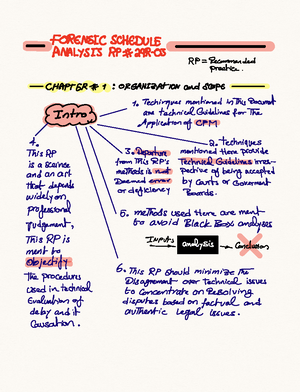 FORENSIC SCHEDULE
ANALYSIS RP # 29R-03
RP = Recommended
practice.
CHAPTER # 1 : ORGANIZATION and SCOPE
Intro
1. Techinques mentioned in this Document
are technical Guidelines for The
Application of CPM
2. Techniques
mentioned there provide
Technical Guidelines irres-
pective of being accepted
by Courts or Goverment
Boards.
3. Departure
from This RP's
methods is not
Deemed error
or deficiency
4.
This RP
is a science
and an art
that depends
widely on
professional
judgement,
This RP is
ment to
objectify
The procedures
used in technical
Evaluation of
delay and it
Causation.
5. methods used there are ment
to avoid Black Box analysis
Inputs
analysis
Conclusion
6. This RP should minimize the
Disagreement over technical issues
to Concentrate on Resolving
disputes based on factual and
authentic legal issues.